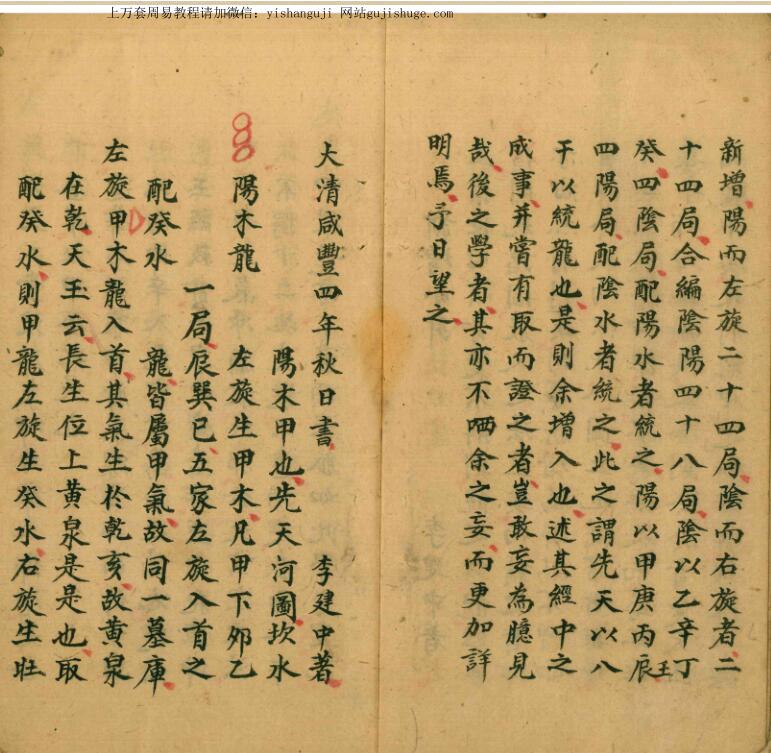 上万套周易教程请加微信：yishanguji 网站gujishuge.com
新增陽而左旋二十四局陰而右旋者二
十四局合編陰陽四十八局陰以乙辛丁
癸四陰局配陽水者統之陽以甲庚丙辰壬
四陽局配陰水者統之此之謂先天以八
干以統龍也是則余增入也述其經中之
成事并嘗有取而證之者豈敢妄為臆見
哉後之學者其亦不哂余之妄而更加詳
明焉予日望之
大清咸豐四年秋日書 李建中著
陽木甲也先天河圖坎水
陽木龍 左旋生甲木凡甲下夘乙
一局辰巽巳五家左旋入首之
配癸水 龍皆屬甲氣故同一墓庫
左旋甲木龍入首其氣生於乾亥故黄泉
在乾天玉云長生位上黄泉是是也取
配癸水則甲龍左旋生癸水右旋生旺